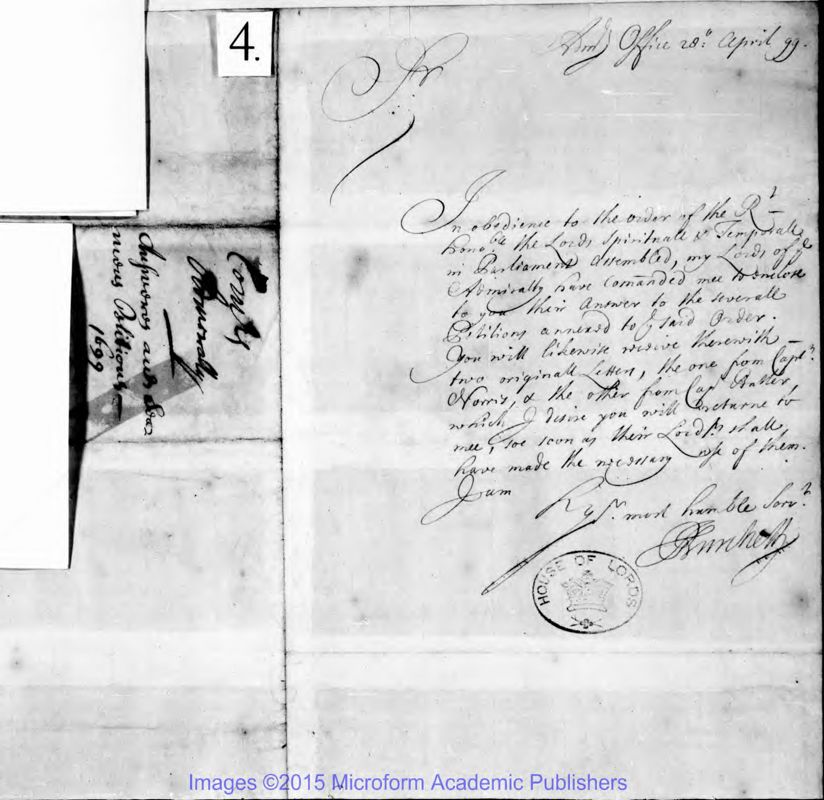 4.
Adm^ty Office 28^o: April 99.
Sr
In obedience to the order of the R^t
hono^ble the Lords Spirituall & Temporall
in Parliament Assembled, my Lords of y^e
Admiralty have comanded mee to enclose
to you their Answer to the severall
Petitions annexed to y^e said Order.
You will likewise receive therewith
two originall Letters, the one from Cap^t
Norris, & the other from Cap^t
which I desire you will returne to
mee, soe soon as their Lordp^s shall
have made the necessary use of them.
I am
S^r most humble Serv^t
Burchett
HOUSE OF LORDS
Admiralty
Answeres and
Petitions
1699
Images ©2015 Microform Academic Publishers